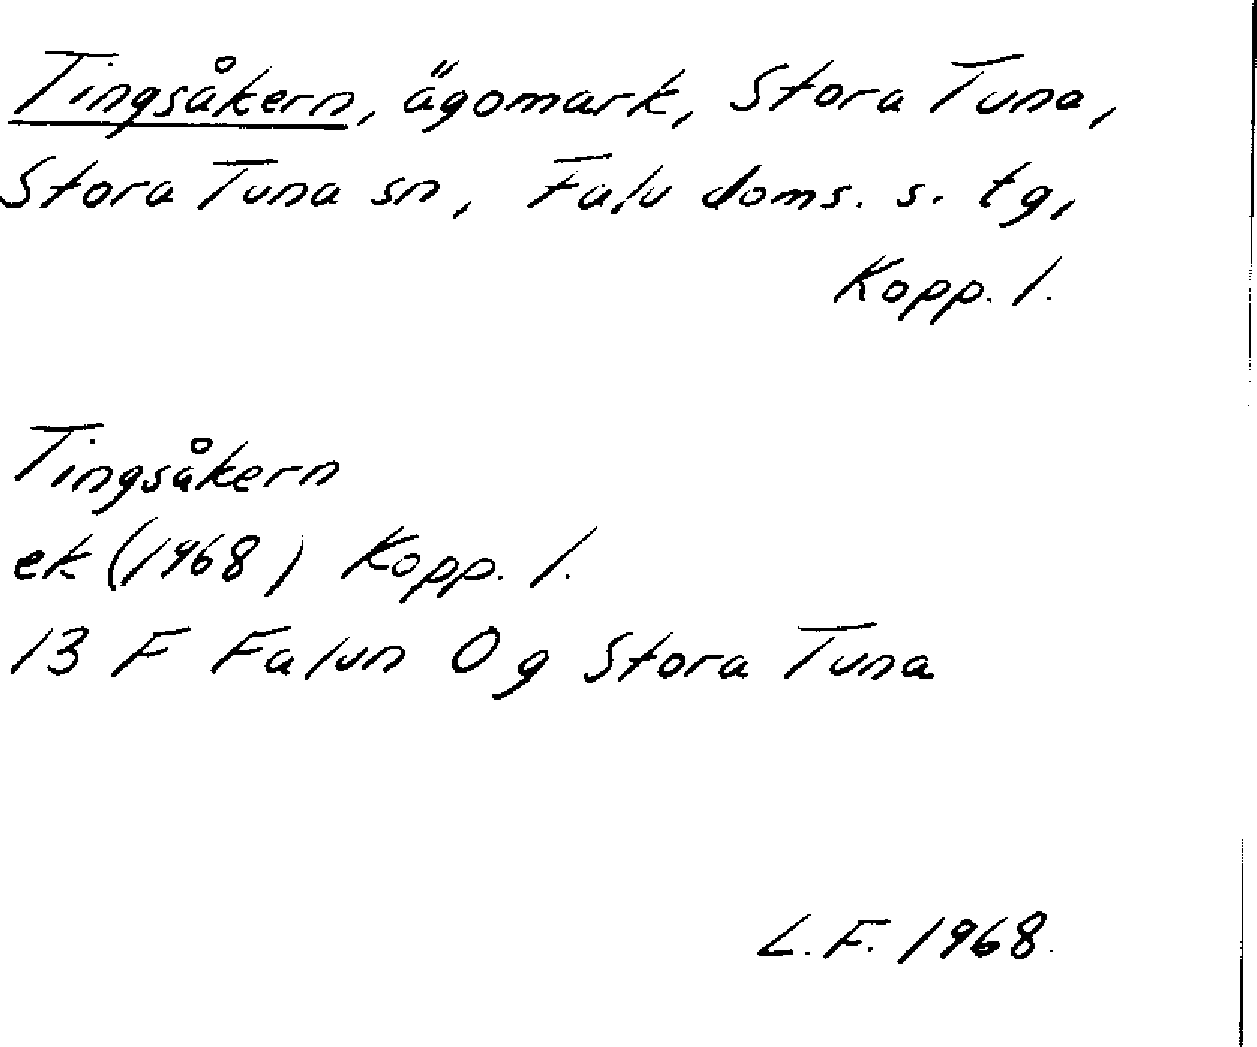 Tingsåkern, ägomark, Stora Tuna,
Stora Tuna sn, Falu doms. s. tg,
Kopp. l.
Tingsåkern
ek (1968) Kopp. l.
13 F Falun 0 g Stora Tuna
L.F. 1968.